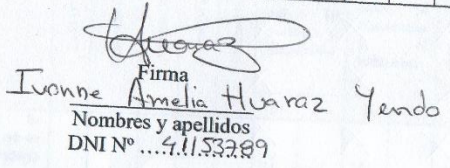 Huaraz
Firma
Ivonne Amelia Huaraz Yendo
Nombres y apellidos
DNI Nº ....41153789